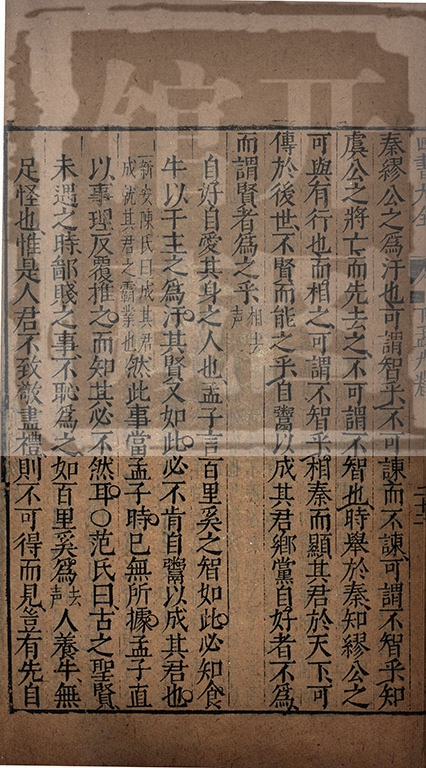 秦繆公之為汙也可謂智乎不可諫而不諫可謂不智乎知
虞公之將亡而先去之不可謂不智也時舉於秦知繆公之
可與有行也而相之可謂不智乎相秦而顯其君於天下可
傳於後世不賢而能之乎自鬻以成其君鄉黨自好者不為
而謂賢者為之乎相去聲
自好自愛其身之人也孟子言百里奚之智如此必知食
牛以干主之為汙其賢又如此必不肯自鬻以成其君也
新安陳氏曰成其君成就其君之霸業也然此事當孟子時已無所據孟子直
以事理反覆推之而知其必不然耳○范氏曰古之聖賢
未遇之時鄙賤之事不恥為之如百里奚為去聲人養牛無
足怪也惟是人君不致敬盡禮則不可得而見豈有先自